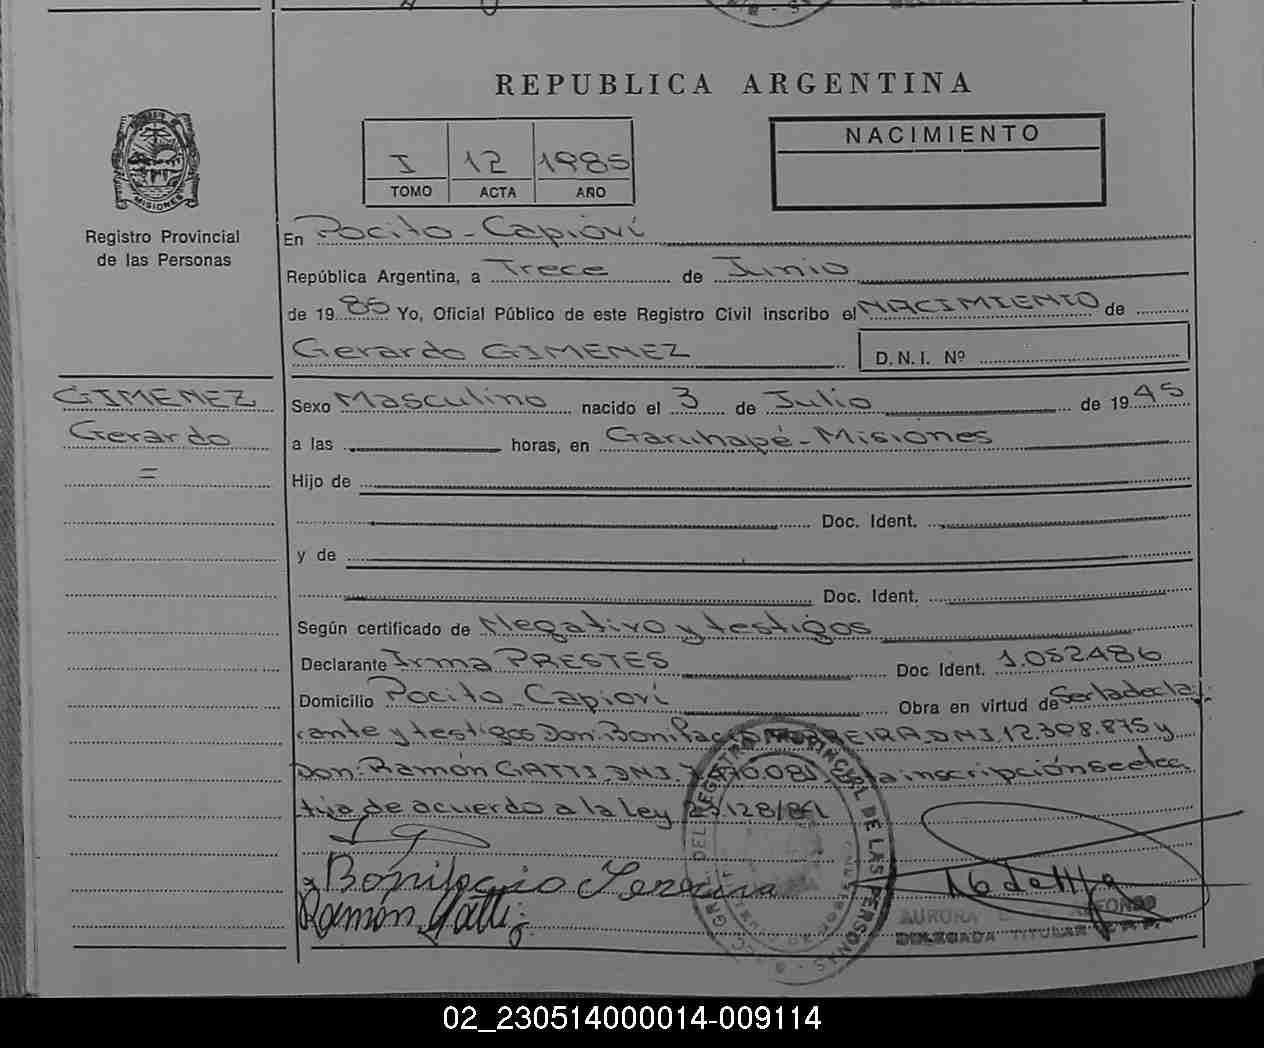 REPUBLICA ARGENTINA
I 12 1985
TOMO ACTA AÑO
NACIMIENTO
MISIONES
Registro Provincial
de las Personas
En Pocito - Capioví
República Argentina, a Trece de Junio
de 1985 Yo, Oficial Público de este Registro Civil inscribo el NACIMIENTO de
Gerardo GIMENEZ D.N.I. Nº
GIMENEZ
Gerardo
=
Sexo Masculino nacido el 3 de Julio de 1945
a las horas, en Garuhapé - Misiones
Hijo de
Doc. Ident.
y de
Doc. Ident.
Según certificado de Negativo y testigos
Declarante Irma PRESTES Doc Ident. 1.052486
Domicilio Pocito - Capioví Obra en virtud de Ser la decla
rante y testigos Don: Bonifacio DNI 12.308.875 y
Don: Ramón GATTI DNI inscripción se efec
túa de acuerdo a la ley
Bonifacio
Ramón Gatti
REGISTRO PROVINCIAL DE LAS PERSONAS
AURORA
DELEGADA TITULAR
02_230514000014-009114